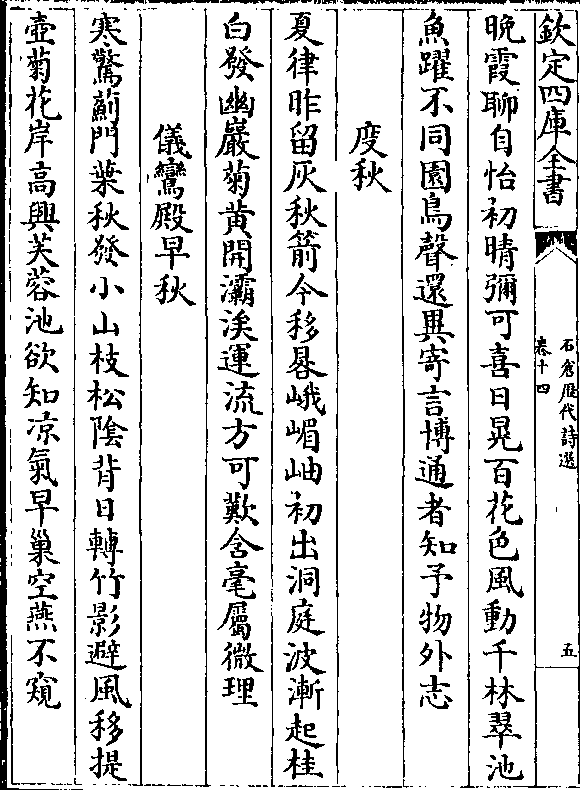 欽定四庫全書
石倉歷代詩選
卷十四
五
晩霞聊自怡初晴彌可喜日晃百花色風動千林翠池
魚躍不同園鳥聲還異寄言博通者知予物外志
度秋
夏律昨留灰秋箭今移晷峨嵋岫初出洞庭波漸起桂
白發幽巖菊黄開灞涘運流方可歎含毫屬微理
儀鸞殿早秋
寒驚薊門葉秋發小山枝松陰背日轉竹影避風移提
壺菊花岸高興芙蓉池欲知凉氣早巢空燕不窺